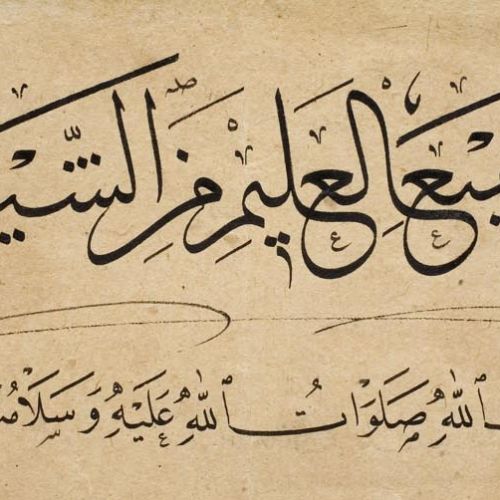 ـميع العليم من الشيـ
الله صلوات الله عليه وسلامه